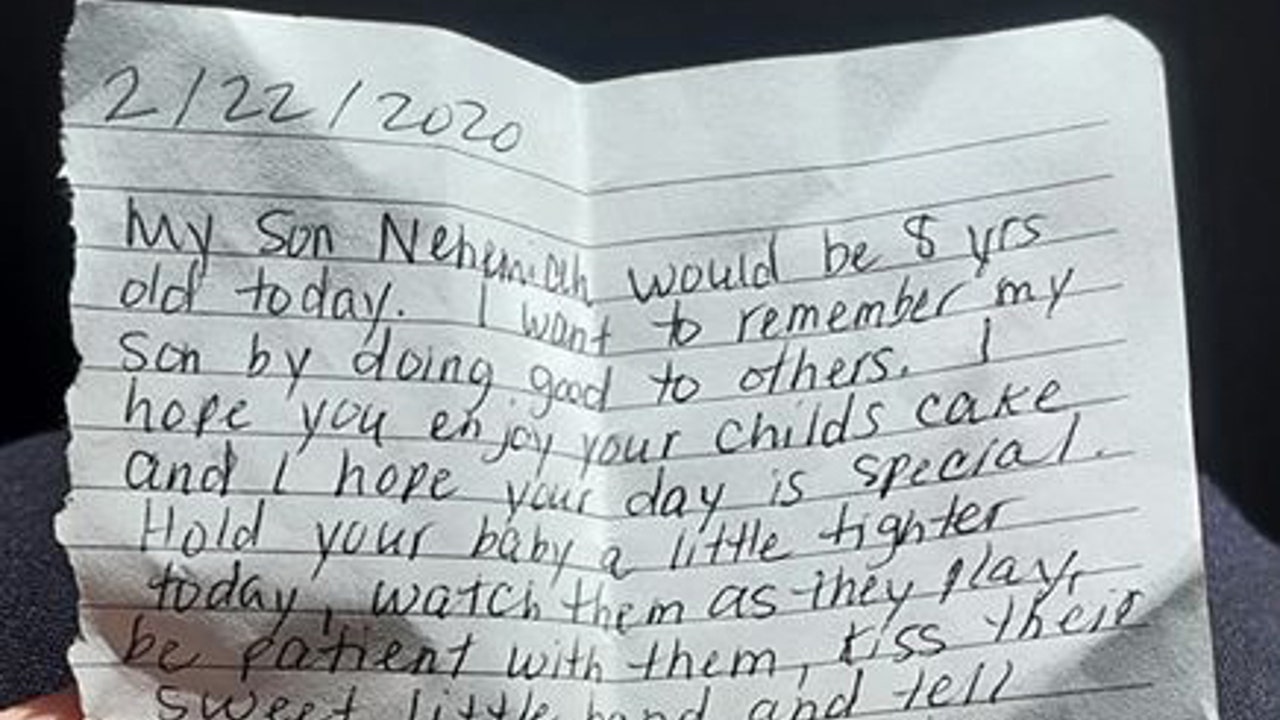 2/22/2020
My Son Nehemiah would be 8 yrs
old today. I want to remember my
son by doing good to others. I
hope you enjoy your childs cake
and I hope your day is special.
Hold your baby a little tighter
today, watch them as they play,
be patient with them, kiss their
sweet little hand and tell